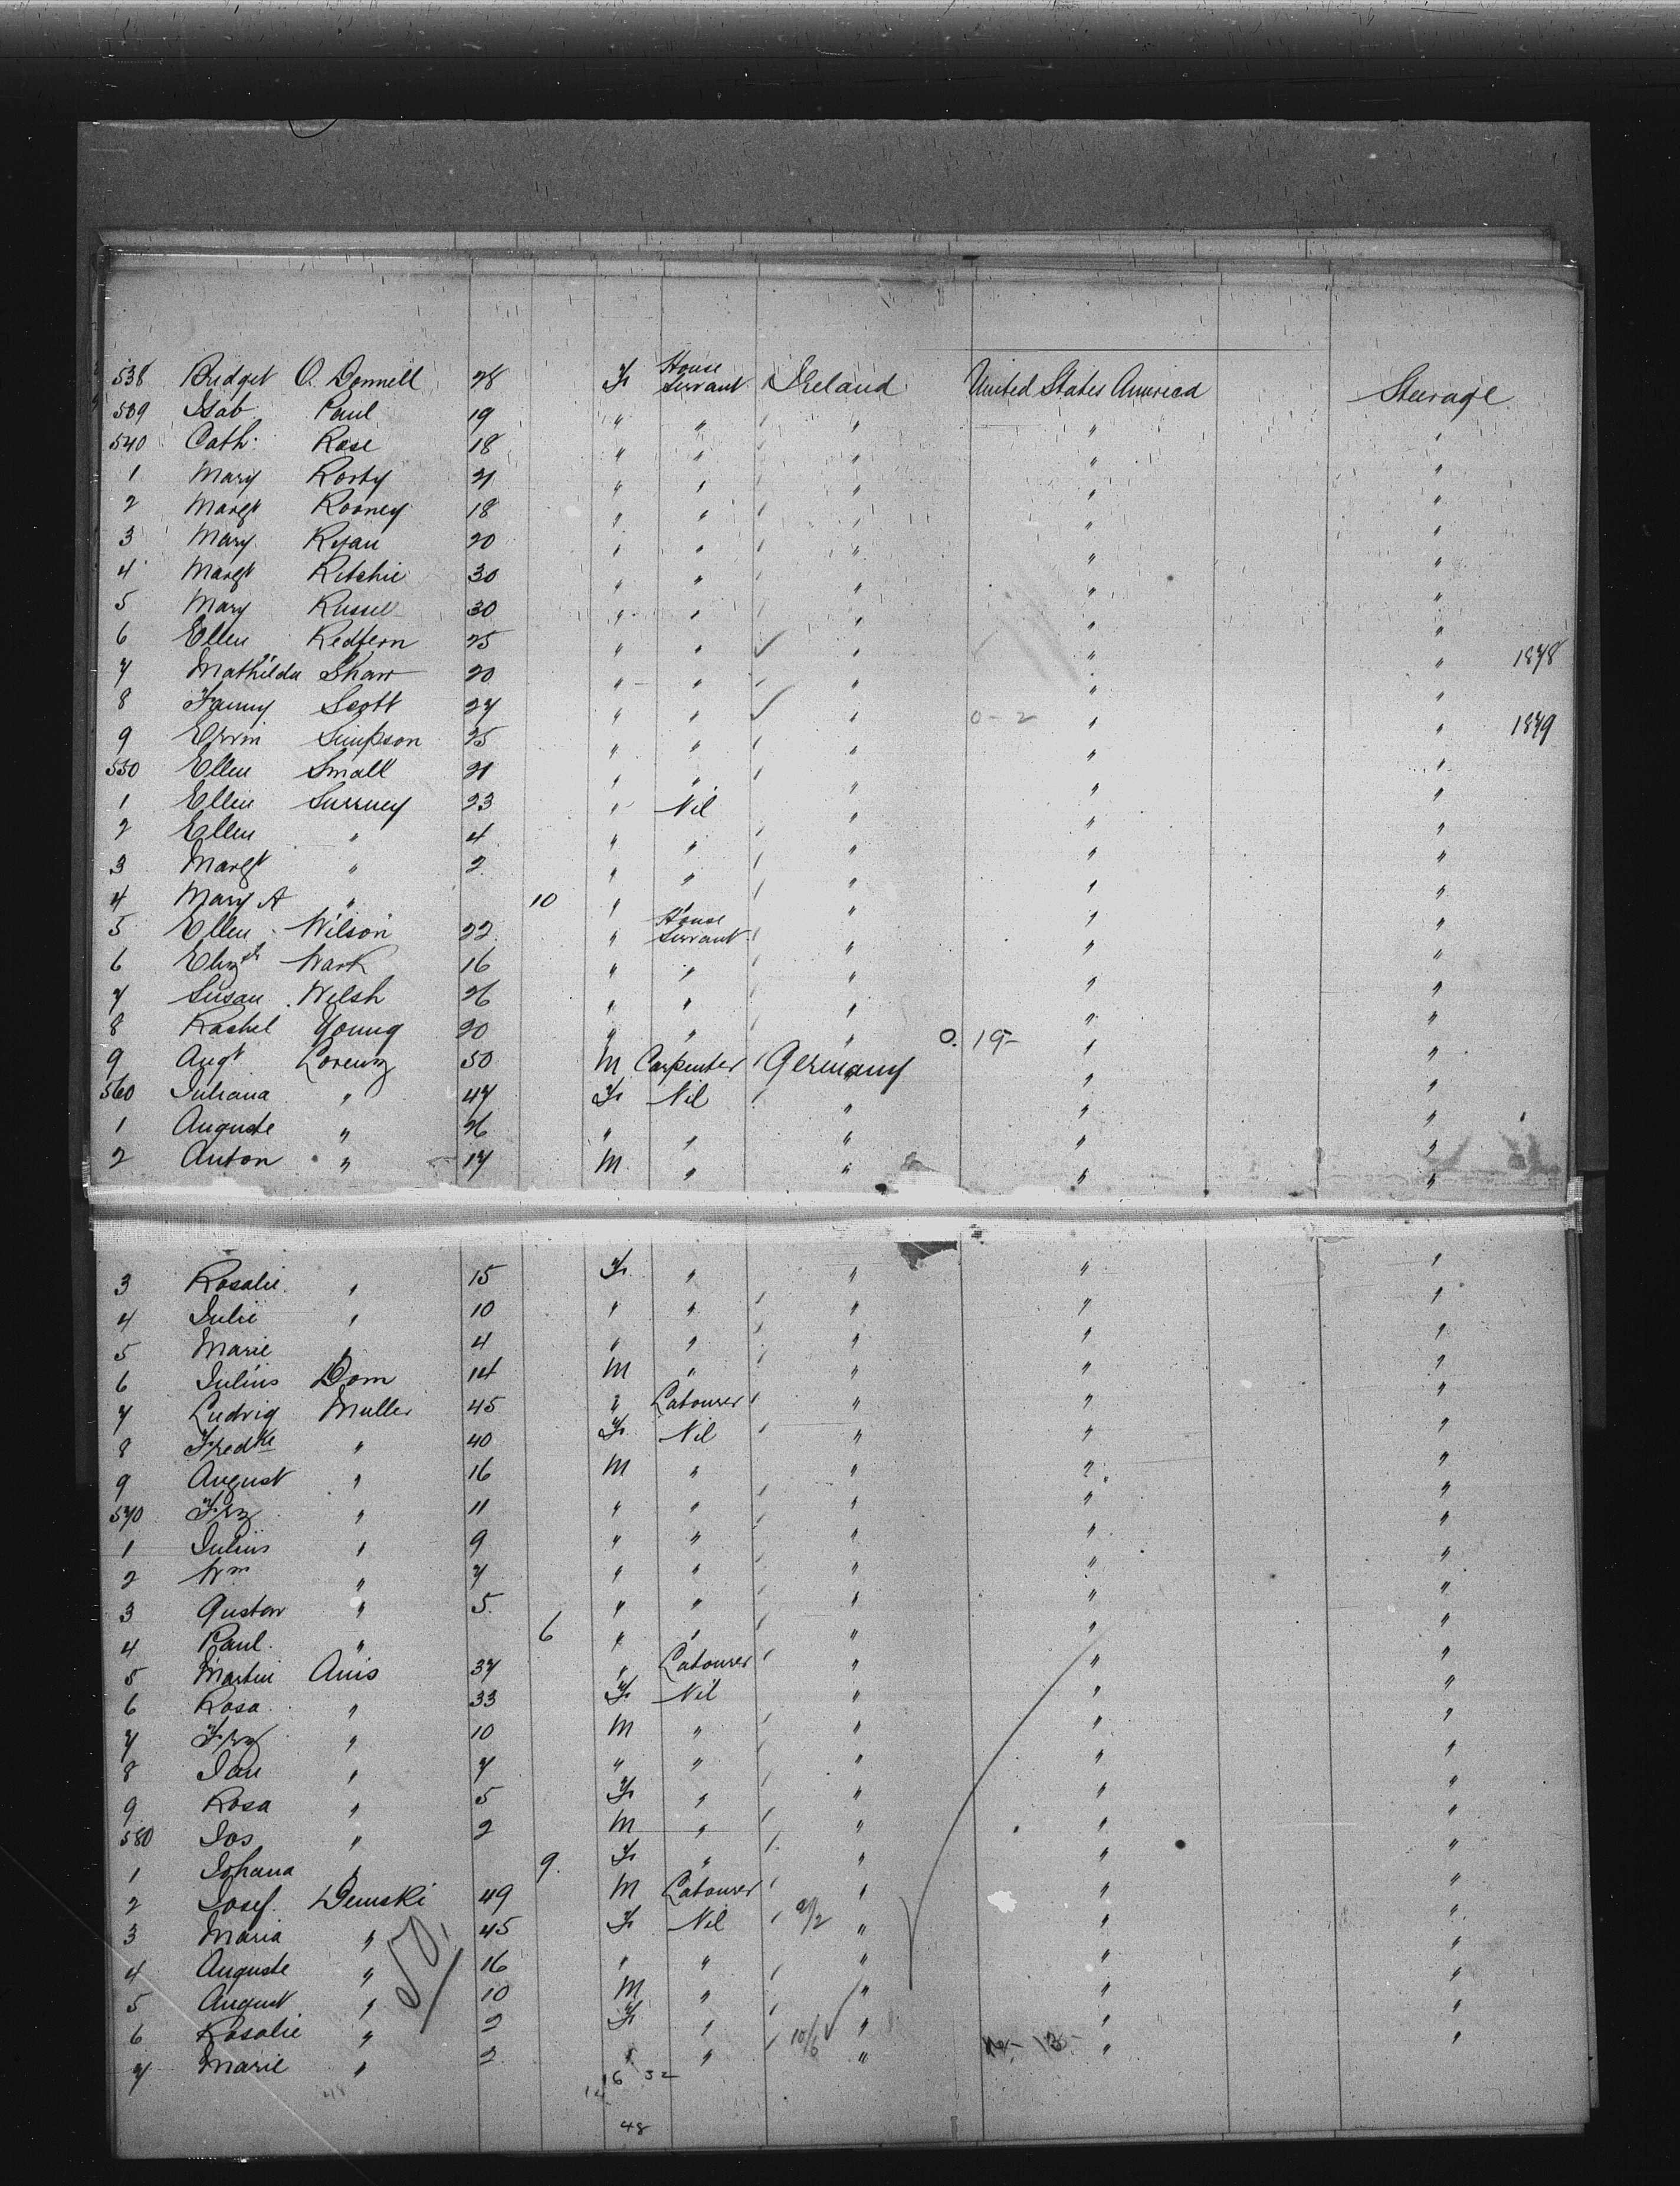 538 Bridget O. Donnell 28 F House Servant Ireland United States America Steerage
539 Isab. Paul 19 " " " " "
540 Cath: Rose 18 " " " " "
1 Mary Rorty 21 " " " " "
2 Margt Rooney 18 " " " " "
3 Mary Ryan 20 " " " " "
4 Margt Ritchie 30 " " " " "
5 Mary Russel 30 " " " " "
6 Ellen Redfern 25 " " " " " 1878
7 Mathilda Shaw 20 " " " " "
8 Fanny Scott 27 " " " 0-2 " " 1879
9 Simpson 25 " " " " "
550 Ellen Small 21 " " " " "
1 Ellen Surney 23 " Nil " " "
2 Ellen " 4 " " " " "
3 Margt " 2 " " " " "
4 Mary A " 10 " " " " "
5 Ellen Wilson 22 " House Servant " " "
6 Elizth Wark 16 " " " " "
7 Susan Welsh 26 " " " " "
8 Rachel Young 20 " " " " "
9 Augt Lorenz 50 M Carpenter Germany 0. 19- " "
560 Juliana " 47 F Nil " " "
1 Auguste " 26 " " " " "
2 Anton " 17 M " " " "
3 Rosalie " 15 F " " " "
4 Julie " 10 " " " " "
5 Marie " 4 " " " " "
6 Julius Dom 14 M " " " "
7 Ludvig Muller 45 " Labourer " " "
8 Fredke " 40 F Nil " " "
9 August " 16 M " " " "
570 Frz " 11 " " " " "
1 Julius " 9 " " " " "
2 Wm " 7 " " " " "
3 Gustav " 5 " " " " "
4 Paul " 6 " " " " "
5 Martin Anis 37 " Labourer " " "
6 Rosa " 33 F Nil " " "
7 Frz " 10 M " " " "
8 Jan " 7 " " " " "
9 Rosa " 5 F " " " "
580 Jos " 2 M " " " "
1 Johana " 9 F " " " "
2 Josef Demski 49 M Labourer " " "
3 Maria " 45 F Nil " " "
4 Auguste " 16 " " " " "
5 August " 10 M " " " "
6 Rosalie " 2 F " " " "
7 Marie " 2 " " 10/6 " " "
16 32
48